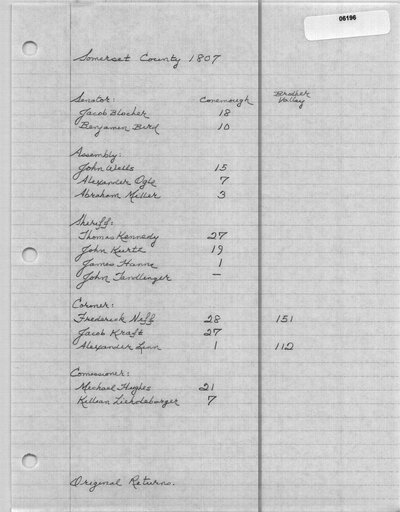 06196
Somerset County 1807
Senator: Conemaugh Brother Valley
Jacob Blocher 18
Benjamin Bird 10
Assembly:
John Wells 15
Alexander Ogle 7
Abraham Miller 3
Sheriff:
Thomas Kennedy 27
John Kurtz 19
James Hanna 1
John Tandlinger —
Coroner:
Frederick Neff 28 151
Jacob Kraft 27
Alexander Linn 1 112
Comissioner:
Michael Hughes 21
Killian 7
Original Returns.